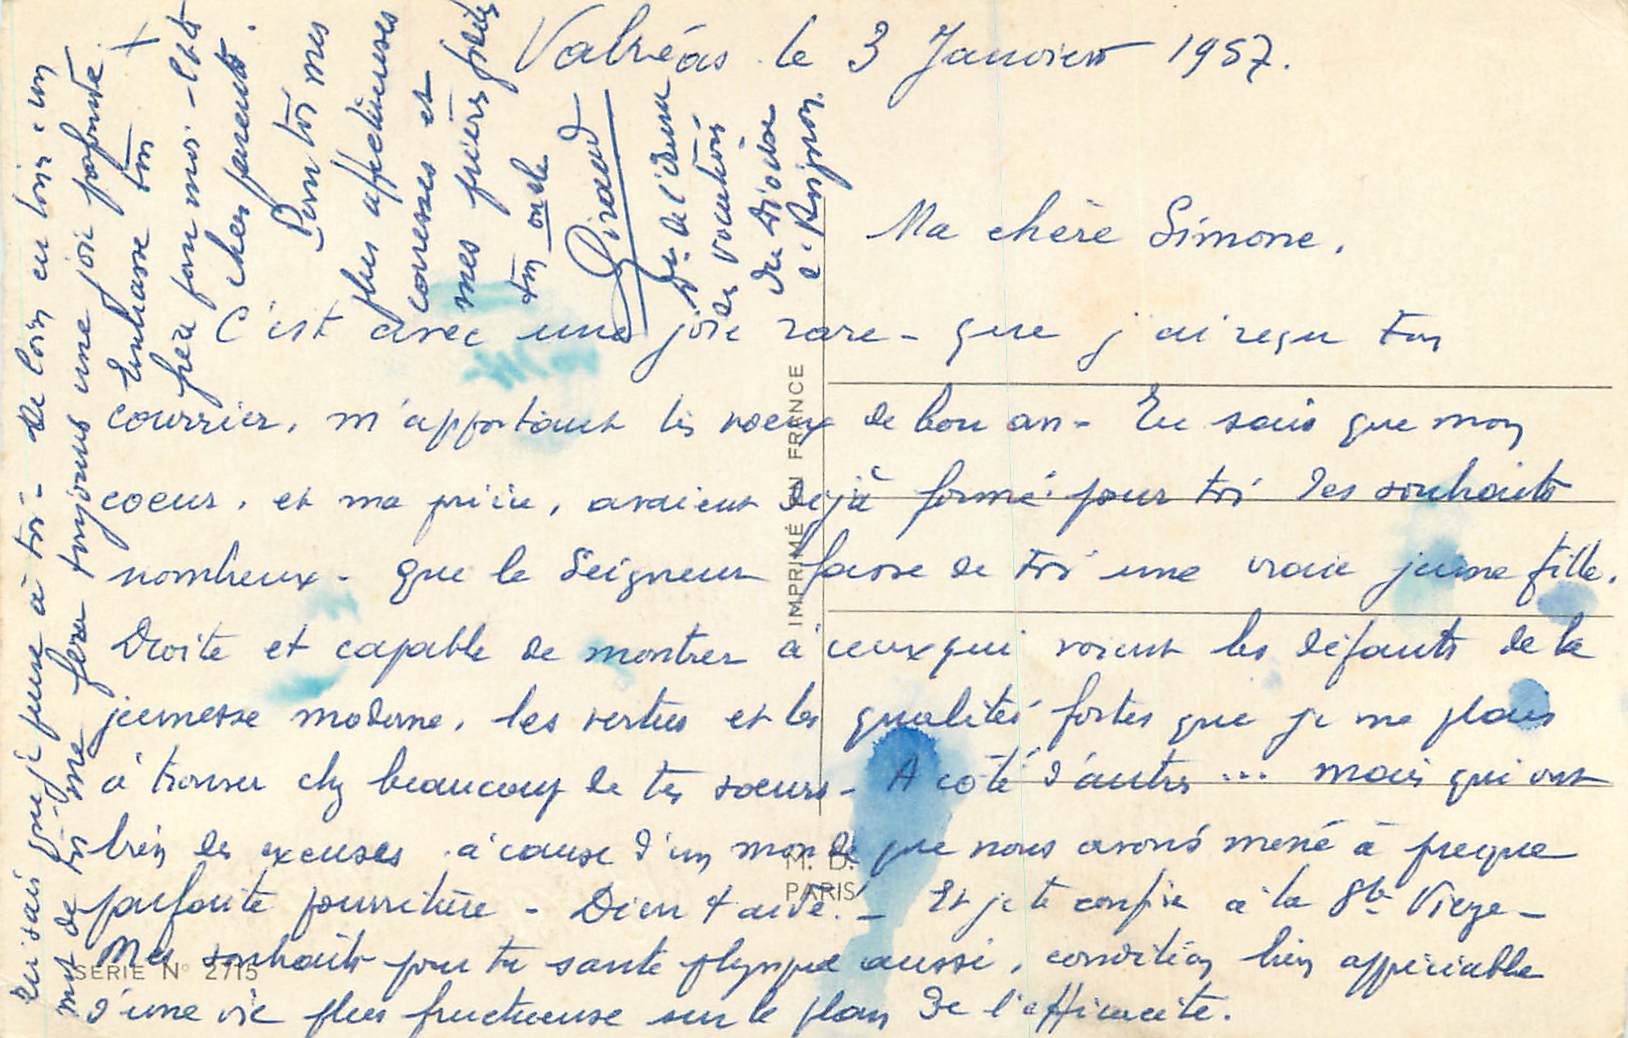 Valréas le 3 Janvier 1957.
Ma chère Simone,
C'est avec une joie rare - que j'ai reçu ton
courrier, m'apportant tes voeux de bon an - Tu sais que mon
coeur, et ma prière, avaient déjà formé pour toi des souhaits
nombreux - que le Seigneur fasse de toi une vraie jeune fille.
Droite et capable de montrer à ceux qui voient les défauts de la
jeunesse moderne, les vertus et les qualités fortes que je me plais
à trouver chez beaucoup de tes soeurs - A côté d'autres ... mais qui ont
bien des excuses à cause d'un monde que nous avons mené à presque
parfaite pourriture - Dieu t'aide. - Et je te confie à la Ste Vierge -
Mes souhaits pour ta santé physique aussi, condition bien appréciable
d'une vie plus fructueuse sur le plan de l'efficacité.
Tu sais que je pense à toi - de loin en loin, un
mot de toi me fera toujours une joie profonde.
Embrasse ton
frère pour moi - et tes
chers parents.
Pour toi mes
plus affectueuses
caresses et
mes prières
ton oncle
Giraud
Dr de l'Œuvre
des vocations
du Diocèse
d'Avignon.
IMPRIMÉ EN FRANCE
M. D.
PARIS
SERIE N° 2715